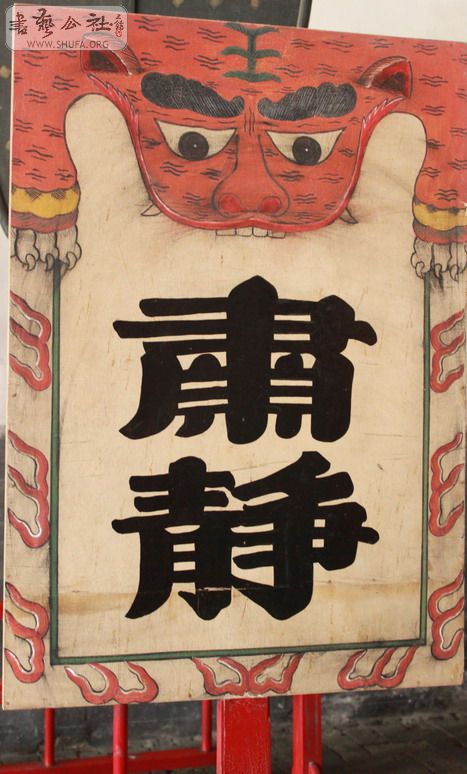 書藝公社
WWW.SHUFA.ORG
肅
靜